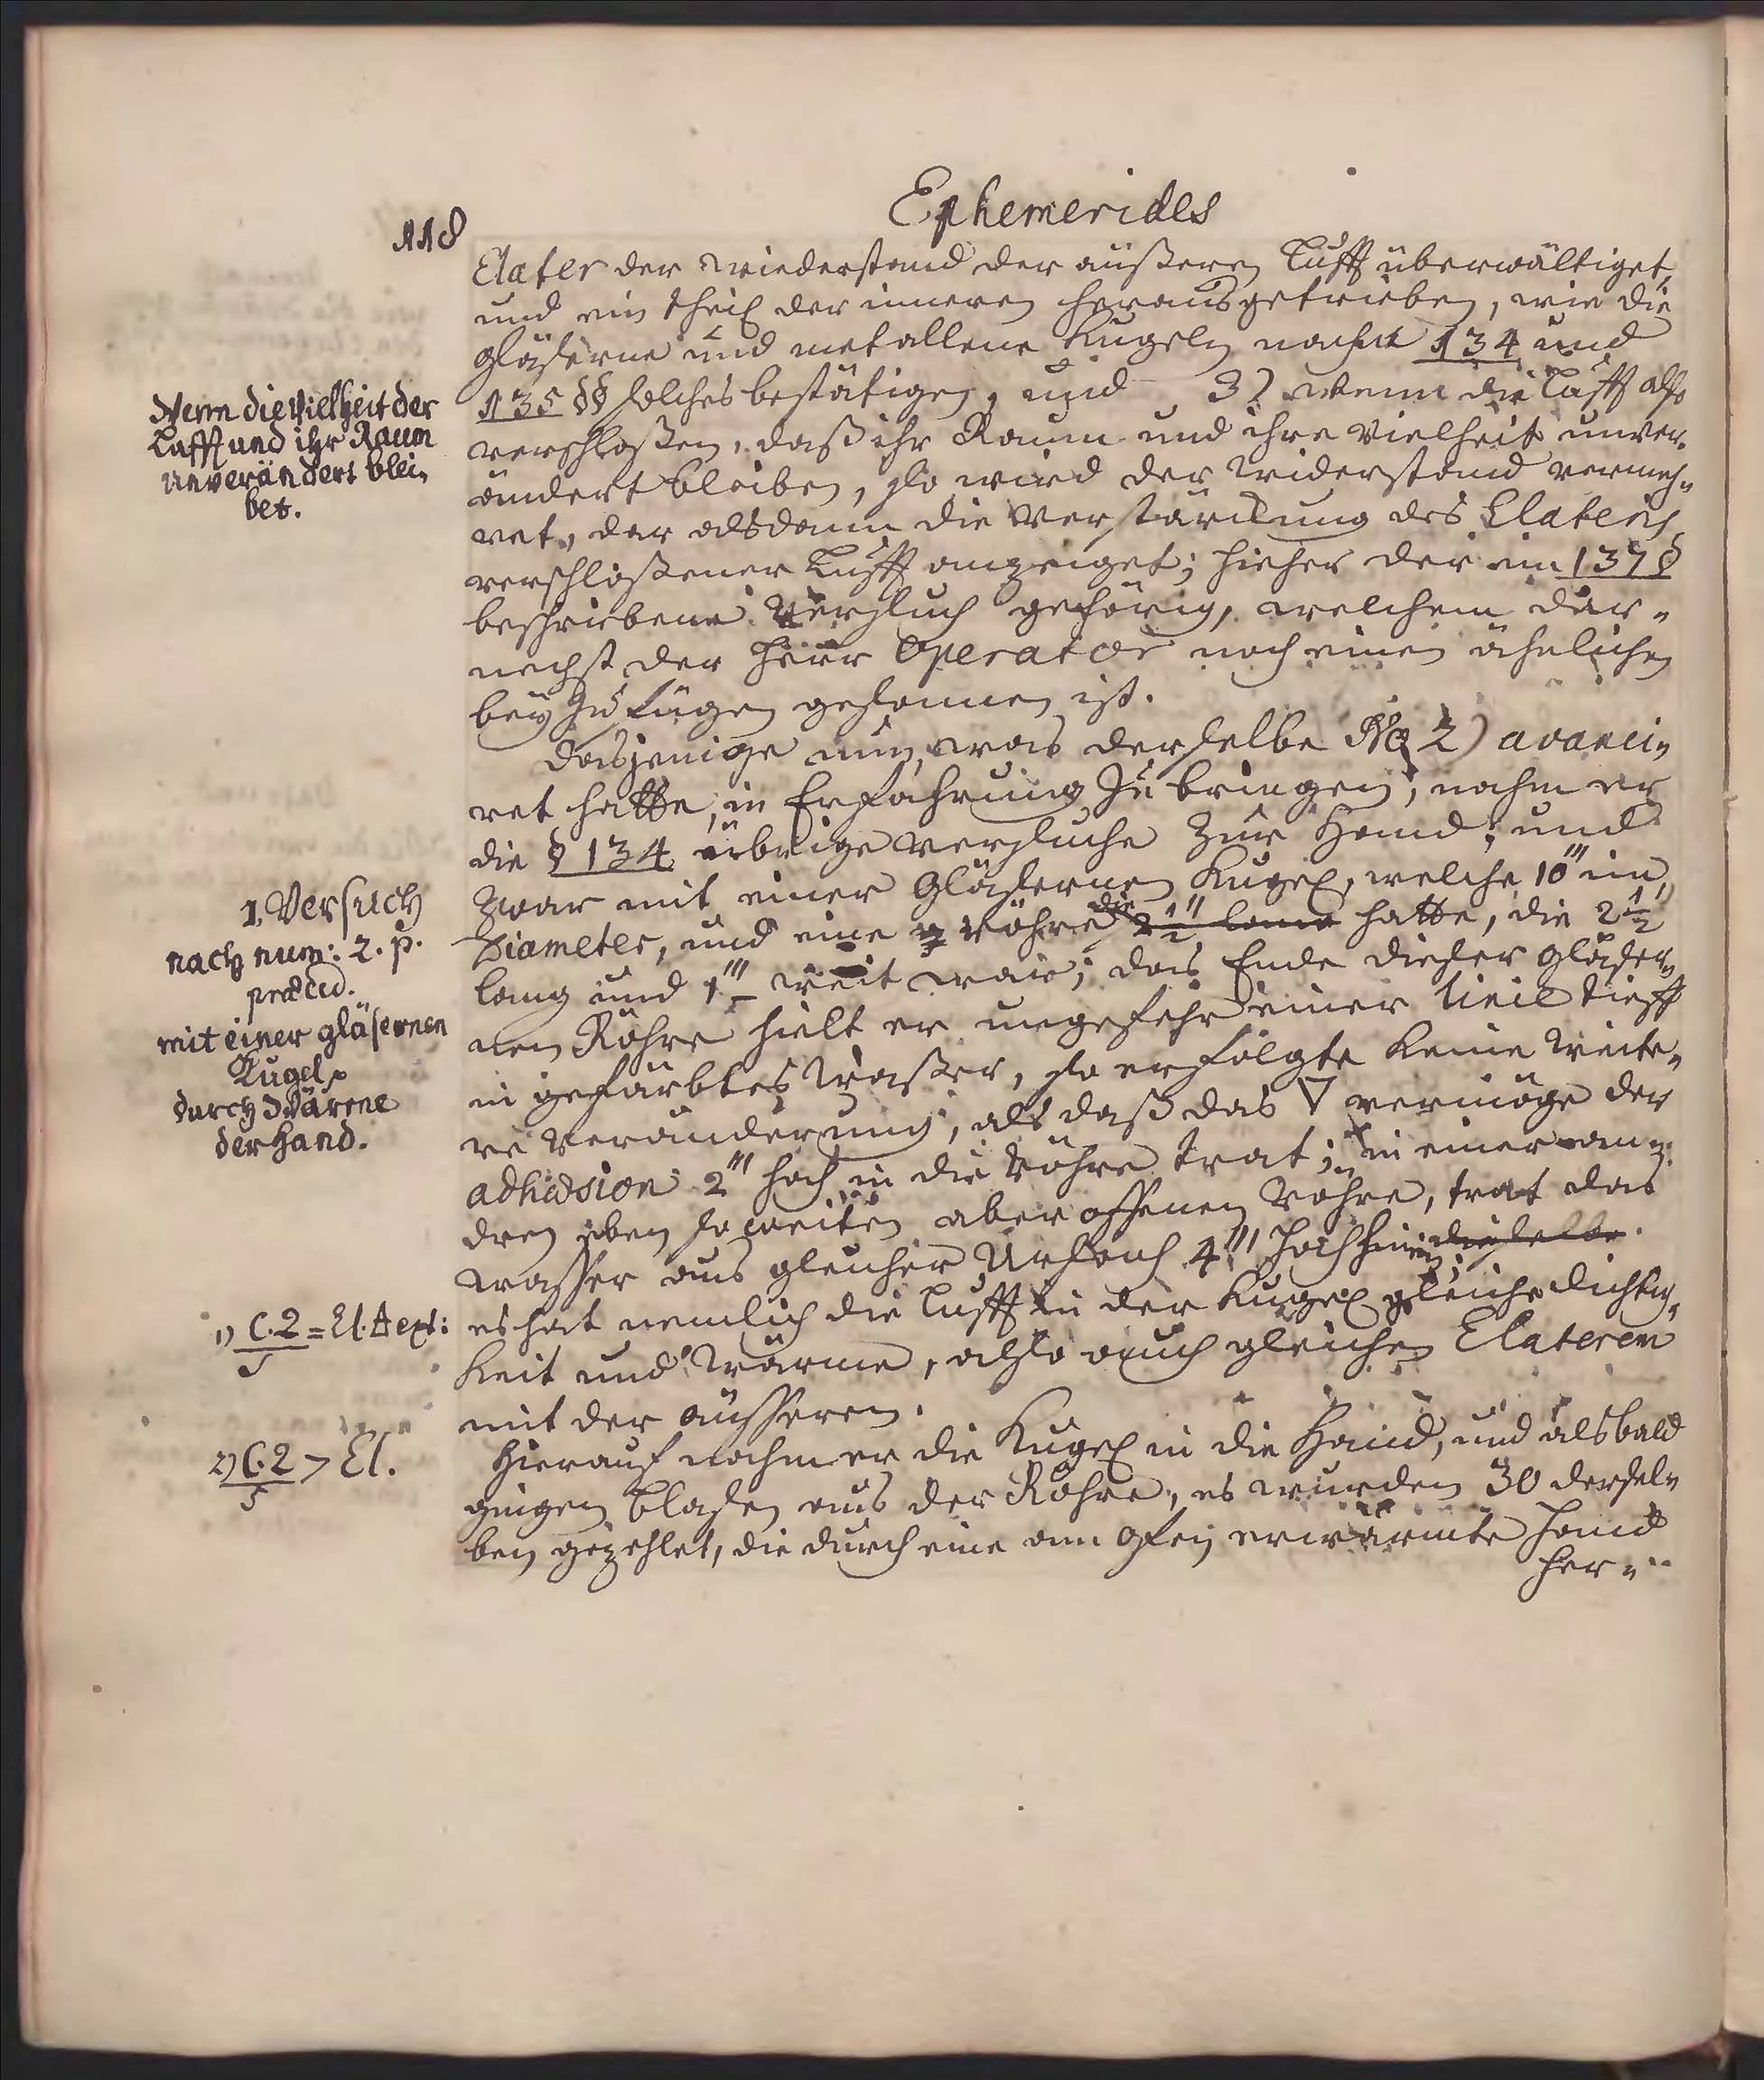 118
Ephemerides
Elater der wiederstand der äußeren Lufft überwältiget,
und ein theil der inneren herausgetrieben, wie die
gläserne und metallene Kugeln nach 134 und
135 §§ solches bestätigen, und 3) wenn die Lufft also
verschloßen, daß ihr Raum und ihre Vielheit unver„
ändert bleiben, so wird der widerstand vermeh„
ret, der alsdann die verstärckung des Elateris
verschloßener Lufft anzeiget; hieher der im 137 §
beschriebene Versuch gehörig, welchem dar„
nechst der Herr Operator noch einen ähnlichen
beyzufügen gesonnen ist.
Wenn die Vielheit der
Lufft und ihr Raum
unverändert blei„
bet.
Dasjenige nun, was derselbe No 2) avanci„
ret hatte, in Erfahrung zu bringen, nahm er
die § 134 übrige versuche zur Hand; und
zwar mit einer Gläsernen Kugel, welche 10''' im
Diameter, und eine Röhre 2½'' lang hatte, die 2½''
lang und 1''' weit war; das Ende dieser gläser„
nen Röhre hielt er ungefehr einer Linie tieff
in gefärbtes Waßer, so erfolgte keine weite„
re veränderung, als daß das ▽ vermöge der
adhæsion 2''' hoch in die Röhre trat; in einer an„
dren eben so weiten aber offenen Röhre, trat das
wasser aus gleicher Ursach 4''' hoch hinein dieselbe.
es hat nemlich die Lufft in der Kugel gleiche dichtig„
keit und Wärme, also auch gleichen Elaterem
mit der äusseren.
1. Versuch
nach num: 2. p.
præced.
mit einer gläsernen
Kugel
durch Wärme
der Hand.
1) C.2 = El. ext:
S
Hierauf nahm er die Kugel in die Hand, und alsbald
gingen blasen aus der Röhre, es wurden 30 dersel„
ben gezehlet, die durch eine am Ofen erwärmte Hand
her„
2) C.2 > El.
S